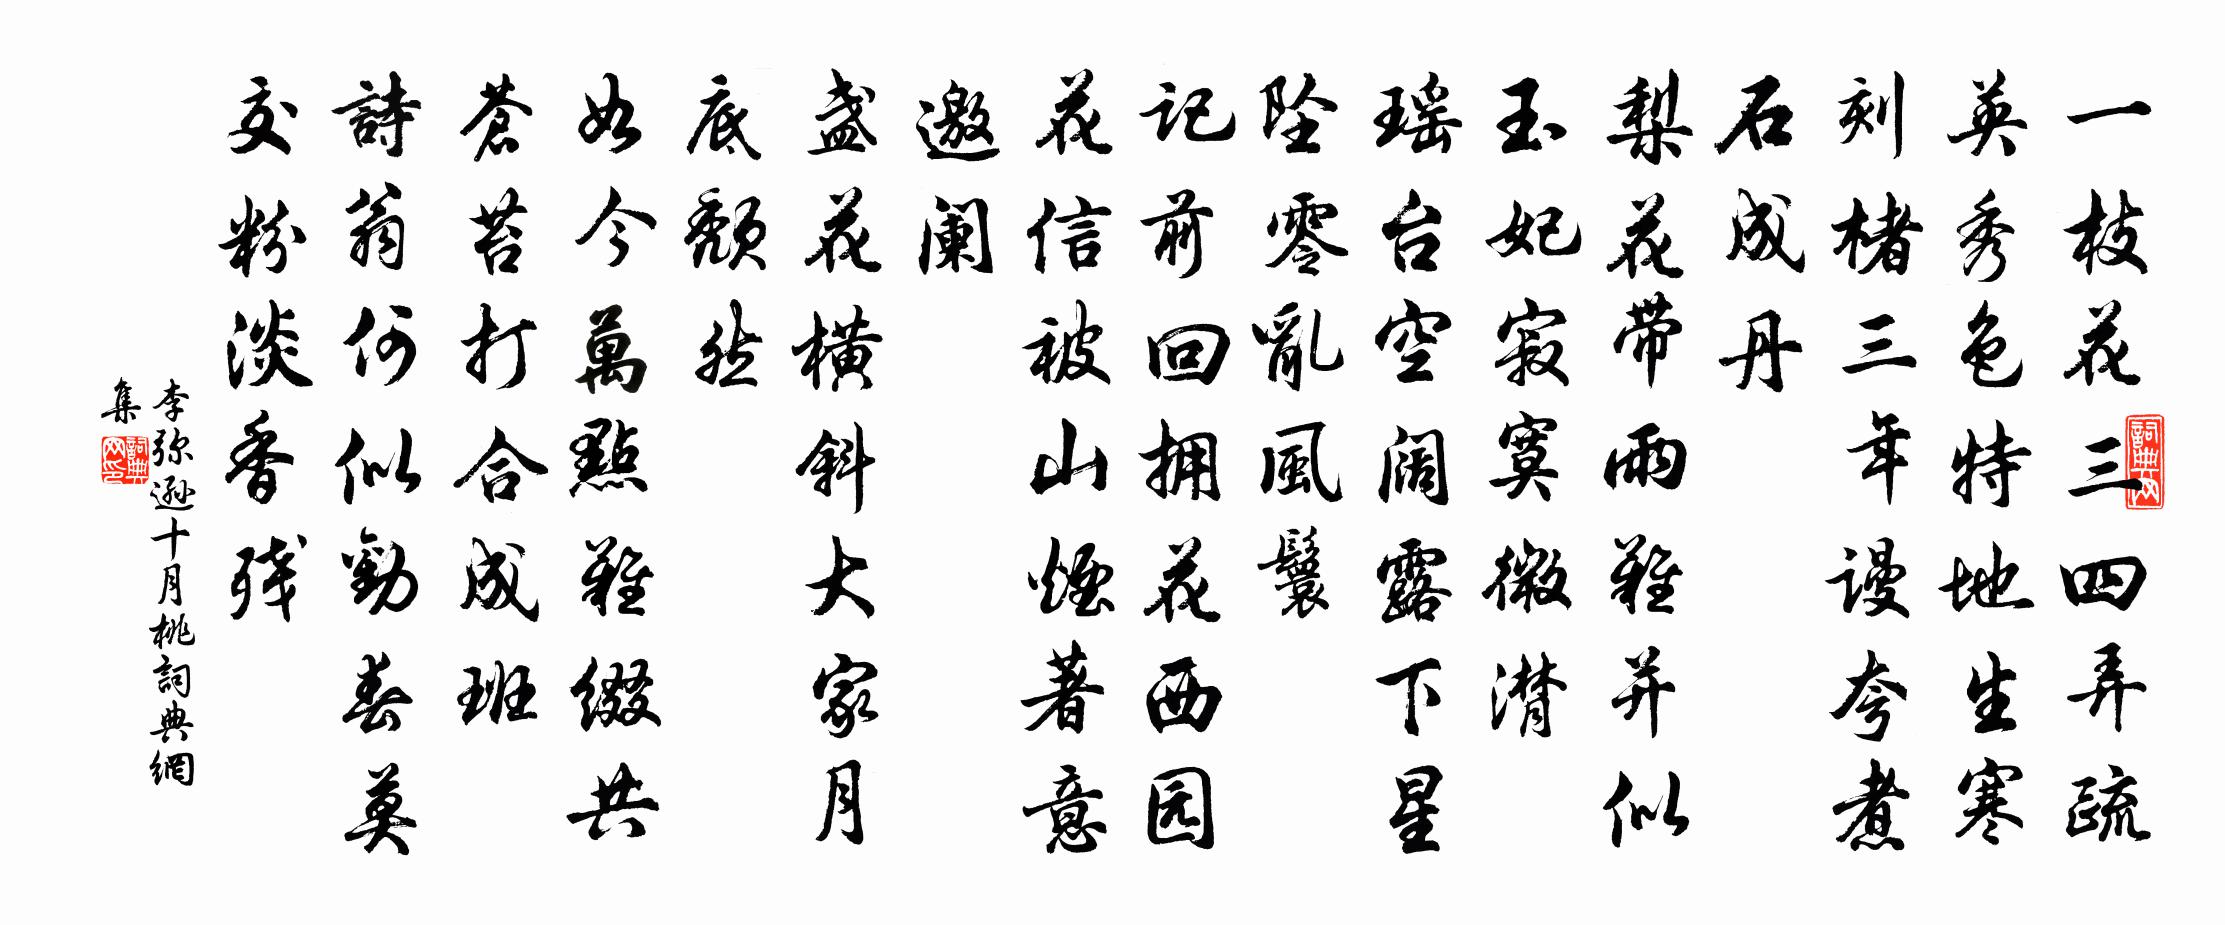 一枝花三三四弄疏
英秀色特地生寒
刻楮三年谩夸煮
石成丹
梨花带雨難并似
玉妃寂寞微潸
瑶台空阔露下星
坠零亂風鬟
记前回拥花西园
花信被山煙著意
邀阑
盏花横斜大家月
底颓然
如今萬點難缀共
蒼苔打合成班
詩翁何似勸春莫
交粉淡香残
李弥遜十月桃詞典網
集